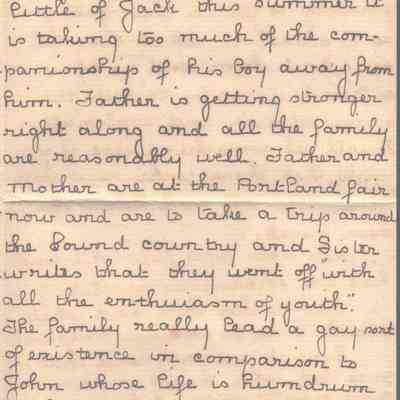 little of Jack this summer it
is taking too much of the com-
panionship of his boy away from
him. Father is getting stronger
right along and all the family
are reasonably well. Father and
Mother are at the Portland fair
now and are to take a trip around
the Sound country and Sister
writes that they went off "with
all the enthuiasm of youth".
The family really lead a gay sort
of existence in comparison to
John whose life is humdrum